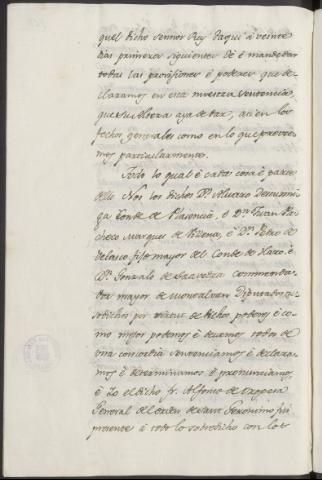 quel dicho señor Rey daqui á veinte
dias primeros siguientes dé é mande dar
todas las provisiones é poderes que de-
claramos en esta nuestra sentencia
que su Alteza aya de dar, asi en los
fechos generales como en lo que provee-
mos particularmente.
Todo lo qual é cada cosa é parte
dello Nos los dichos Dn. Alvaro Destuñi-
ga Conde de Plasencia, é Dn. Juan Pa-
checo Marques de Villena, é Dn. Pedro de
Velasco fijo mayor del Conde de Haro, é
Dn. Gonzalo de Saavedra Commenda-
dor mayor de Montalvan Diputados su-
sodichos por virtud de dichos poderes é co-
mo mejor podemos é devemos todos de
una concordia sentenciamos é declara-
mos é determinamos é pronunciamos,
é Yo el dicho fr. Alfonso de Oropesa
General del orden de Sant Geronimo fui
presente á todo lo sobredicho con los